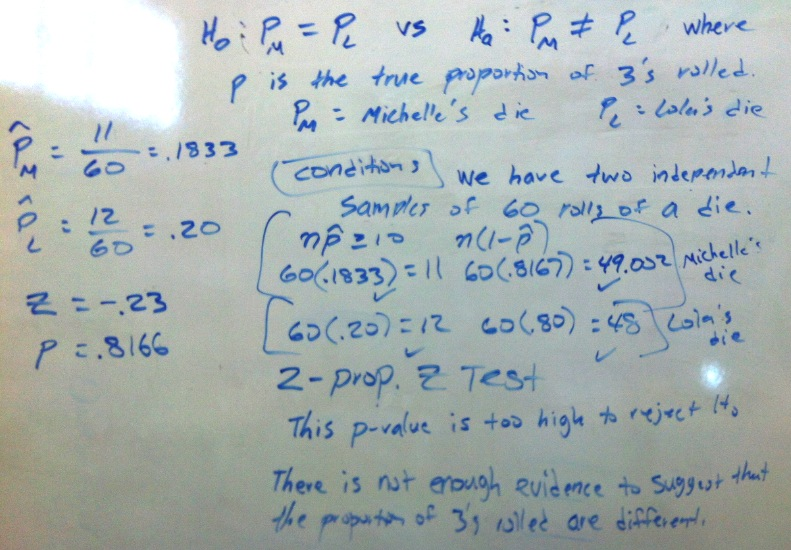 H₀ : P_M = P_L vs Hₐ : P_M ≠ P_L where
p is the true proportion of 3's rolled.
P_M = Michelle's die P_L = Lola's die
p̂_M = 11/60 = .1833
p̂_L = 12/60 = .20
Z = -.23
p = .8166
Conditions We have two independent
Samples of 60 rolls of a die.
np̂ ≥ 10 n(1-p̂)
60(.1833) = 11 ✓ 60(.8167) = 49.002 ✓ Michelle's die
60(.20) = 12 ✓ 60(.80) = 48 ✓ Lola's die
2-prop. Z Test
This p-value is too high to reject H₀
There is not enough evidence to suggest that
the proportion of 3's rolled are different.